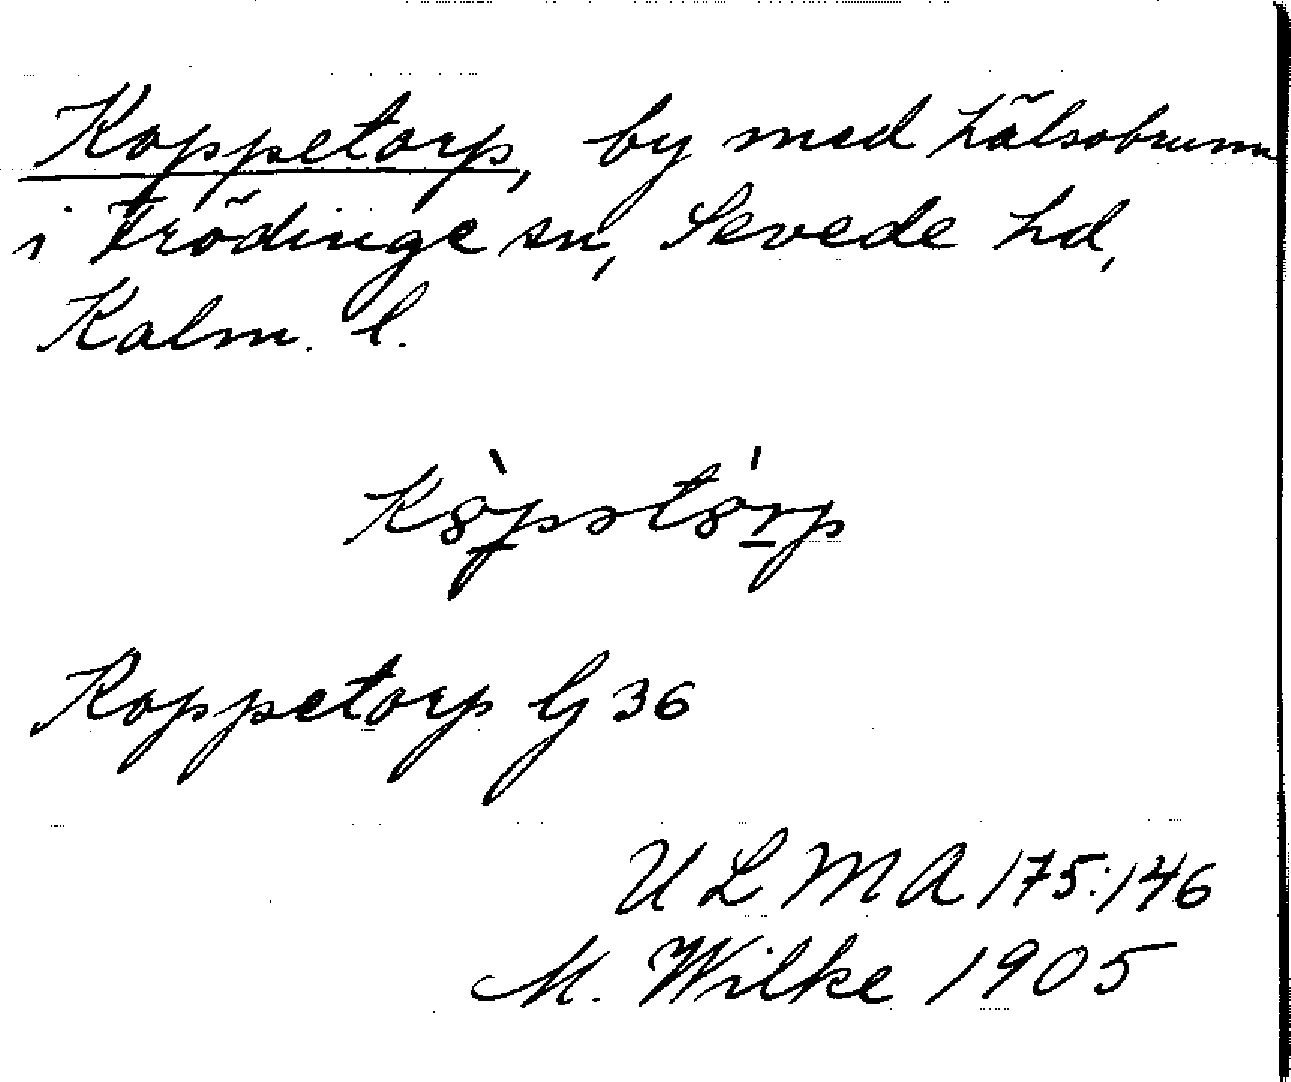 Koppetorp, by med hälsobrunn
i Frödinge sn, Sevede hd,
Kalm. l.
Koppetorp G 36
ULMA 175:146
M. Wilke 1905